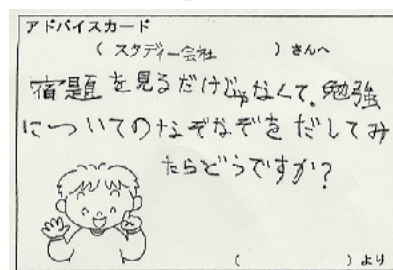 アドバイスカード
( スタディー会社 ) さんへ
宿題を見るだけじゃなくて。勉強
についてのなぞなぞをだしてみ
たらどうですか?
( ) より